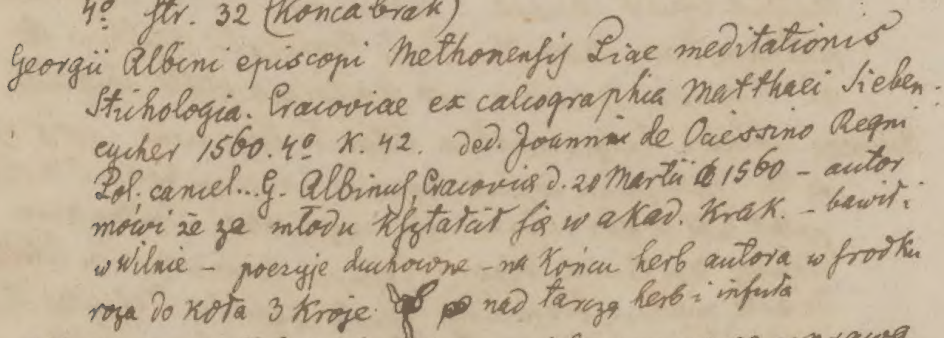 4º str. 32 (Konca brak)
Georgii Albini episcopi Methonensis Piae meditationis
Stichologia. Cracoviae ex calcographia Matthaei Sieben-
eycher 1560. 4º K. 42. ded. Joanni de Ociessino Regni
Pol. cancel... G. Albinus, Cracovia d. 20 Martii 1560 – autor
mówi że za młodu kształcił się w akad. Krak. – bawił i
w Wilnie – poezyje duchowne – na końcu herb autora w środku
roza do koła 3 kroje nad tarczą herb i infuła